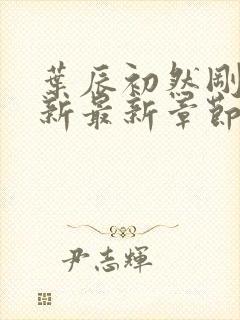 葉辰初然剛
新最新章節
尹志輝